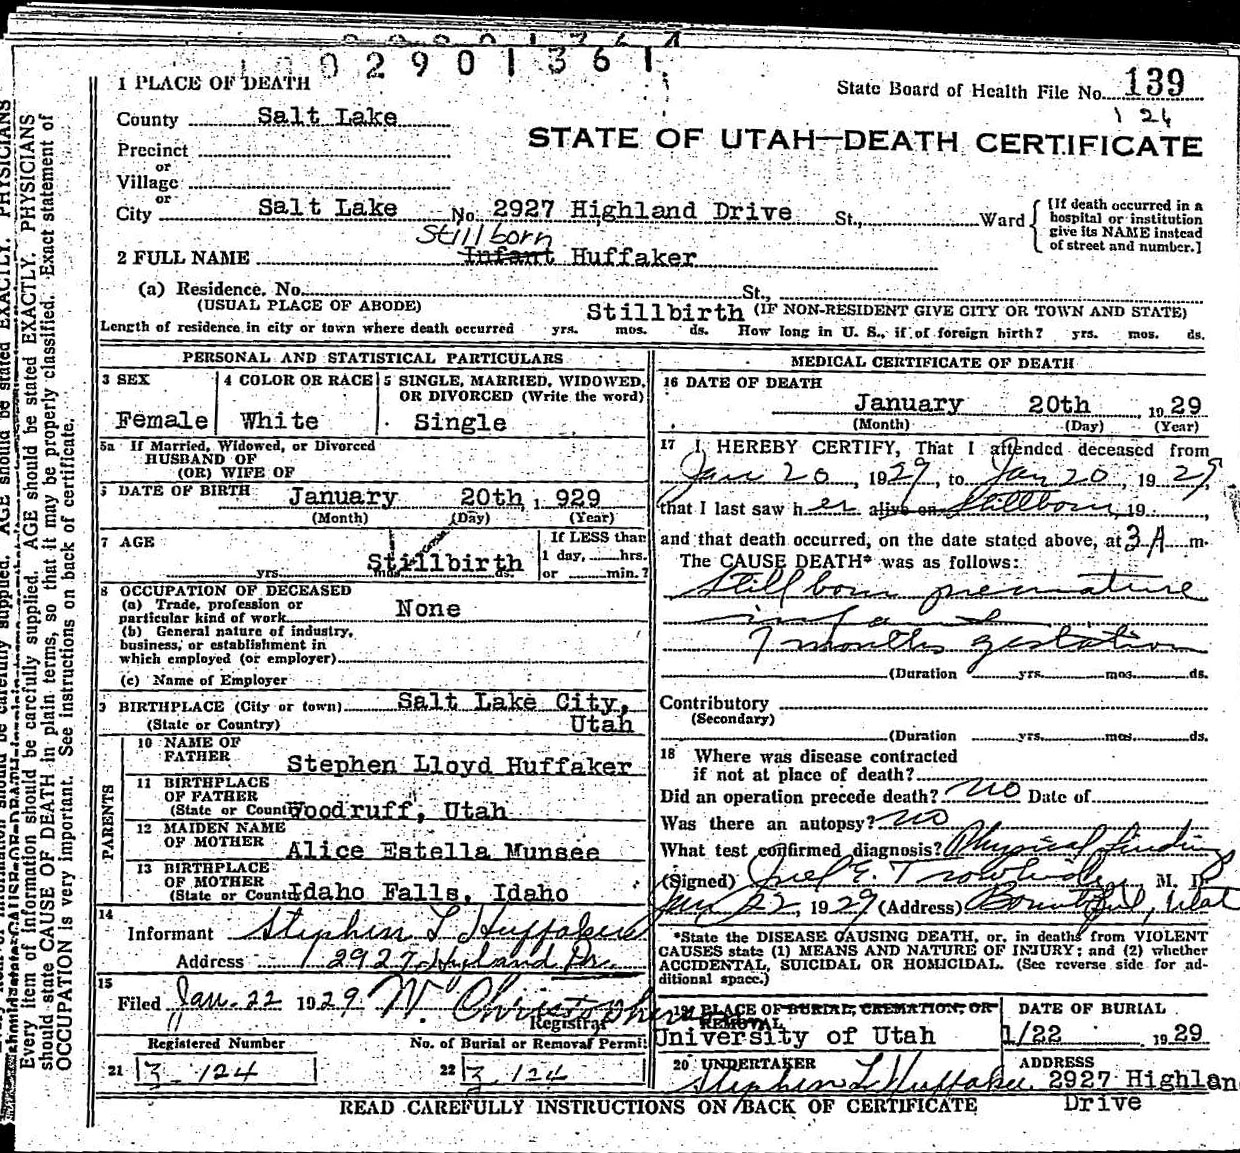 0 2 9 0 1 3 6 1
1 PLACE OF DEATH
State Board of Health File No. 139
124
County Salt Lake
STATE OF UTAH—DEATH CERTIFICATE
Precinct
or
Village
or
City Salt Lake No. 2927 Highland Drive St., Ward
[If death occurred in a hospital or institution give its NAME instead of street and number.]
Stillborn
2 FULL NAME Infant Huffaker
(a) Residence. No. St.,
(USUAL PLACE OF ABODE) Stillbirth (IF NON-RESIDENT GIVE CITY OR TOWN AND STATE)
Length of residence in city or town where death occurred yrs. mos. ds. How long in U. S., if of foreign birth? yrs. mos. ds.
PERSONAL AND STATISTICAL PARTICULARS
3 SEX 4 COLOR OR RACE 5 SINGLE, MARRIED, WIDOWED, OR DIVORCED (Write the word)
Female White Single
5a If Married, Widowed, or Divorced
HUSBAND OF
(OR) WIFE OF
DATE OF BIRTH January 20th, 1929
(Month) (Day) (Year)
7 AGE If LESS than
Stillbirth 1 day, hrs.
yrs. mos. ds. or min.?
8 OCCUPATION OF DECEASED
(a) Trade, profession or
particular kind of work None
(b) General nature of industry,
business, or establishment in
which employed (or employer)
(c) Name of Employer
9 BIRTHPLACE (City or town) Salt Lake City,
(State or Country) Utah
PARENTS
10 NAME OF
FATHER Stephen Lloyd Huffaker
11 BIRTHPLACE
OF FATHER
(State or Country) Woodruff, Utah
12 MAIDEN NAME
OF MOTHER Alice Estella Munsee
13 BIRTHPLACE
OF MOTHER
(State or Country) Idaho Falls, Idaho
14
Informant Stephen L Huffaker
Address 2927 Highland Dr.
15
Filed Jan. 22 1929 W. Christopherson
Registrar
Registered Number No. of Burial or Removal Permit
21 3-124 22 3-124
MEDICAL CERTIFICATE OF DEATH
16 DATE OF DEATH
January 20th, 1929
(Month) (Day) (Year)
17 I HEREBY CERTIFY, That I attended deceased from
Jan 20, 1929, to Jan 20, 1929,
that I last saw her alive on Stillborn, 19
and that death occurred, on the date stated above, at 3 A m.
The CAUSE DEATH* was as follows:
Still born premature
infant
7 months gestation
(Duration yrs. mos. ds.
Contributory
(Secondary)
(Duration yrs. mos. ds.
18 Where was disease contracted
if not at place of death?
Did an operation precede death? no Date of
Was there an autopsy? no
What test confirmed diagnosis? Physical findings
(Signed) M. D.
Jan 22, 1929 (Address) Bountiful, Utah
*State the DISEASE CAUSING DEATH, or, in deaths from VIOLENT
CAUSES state (1) MEANS AND NATURE OF INJURY; and (2) whether
ACCIDENTAL, SUICIDAL OR HOMICIDAL. (See reverse side for ad-
ditional space.)
19 PLACE OF BURIAL, CREMATION, OR REMOVAL DATE OF BURIAL
University of Utah 1/22 1929
20 UNDERTAKER ADDRESS
Stephen L Huffaker 2927 Highlan
Drive
READ CAREFULLY INSTRUCTIONS ON BACK OF CERTIFICATE
Every item of information should be carefully supplied. AGE should be stated EXACTLY. PHYSICIANS
should state CAUSE OF DEATH in plain terms, so that it may be properly classified. Exact statement of
OCCUPATION is very important. See instructions on back of certificate.